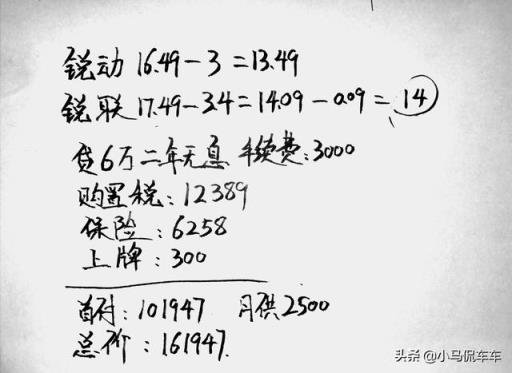 锐动 16.49-3=13.49
锐联 17.49-3.4=14.09-0.09=14
贷6万二年无息 手续费:3000
购置税:12389
保险:6258
上牌:300
首付:101947 月供2500
总价:161947.
头条 @小马侃车车